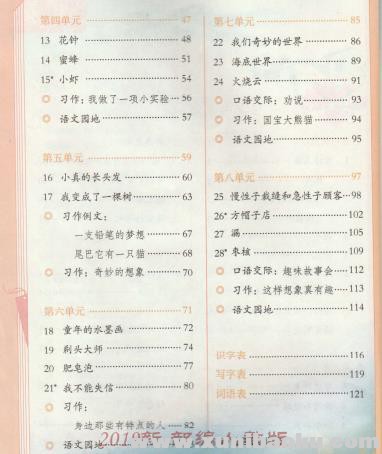 第四单元 47
13 花钟 48
14 蜜蜂 51
15* 小虾 54
习作：我做了一项小实验 56
语文园地 57
第五单元 59
16 小真的长头发 60
17 我变成了一棵树 63
习作例文：
一支铅笔的梦想 67
尾巴它有一只猫 68
习作：奇妙的想象 70
第六单元 71
18 童年的水墨画 72
19 剃头大师 74
20 肥皂泡 77
21* 我不能失信 80
习作：
身边那些有特点的人 82
语文园地
第七单元 85
22 我们奇妙的世界 86
23 海底世界 89
24 火烧云 91
口语交际：劝说 93
习作：国宝大熊猫 94
语文园地 95
第八单元 97
25 慢性子裁缝和急性子顾客 98
26* 方帽子店 102
27 漏 105
28* 枣核 109
口语交际：趣味故事会 112
习作：这样想象真有趣 113
语文园地 114
识字表 116
写字表 119
词语表 121